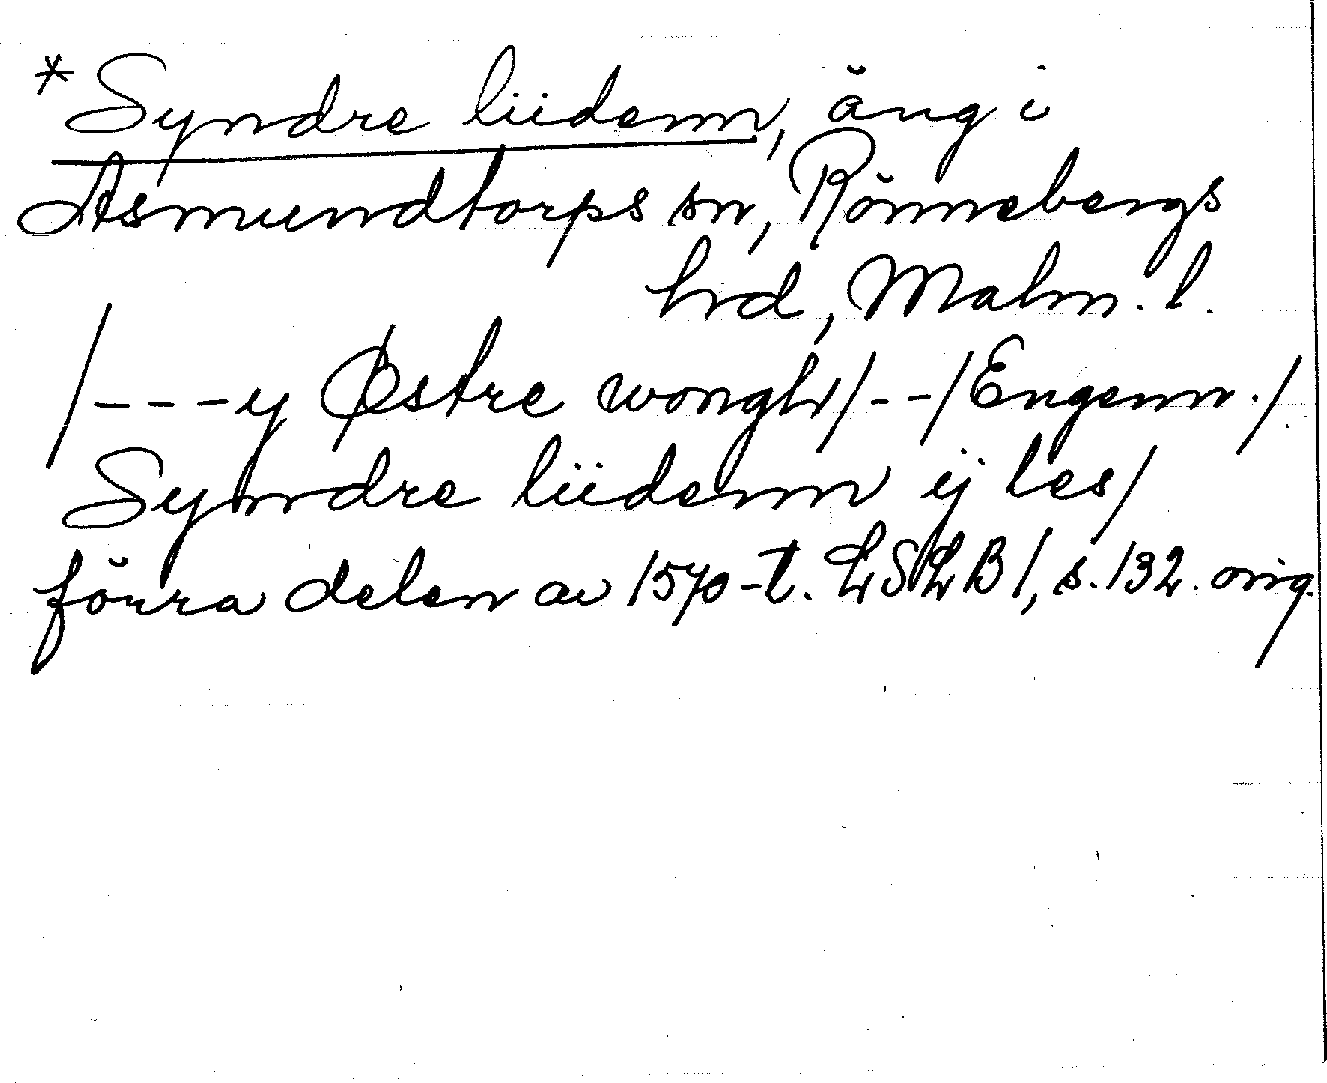 *Syndre liidenn, äng i
Asmundtorps sn, Rönnebergs
hrd, Malm. l.
/---y Østre wongh/--/Engenn./
Syndre liidenn ij les/
förra delen av 1570-t. LSLB 1, s. 132. orig.